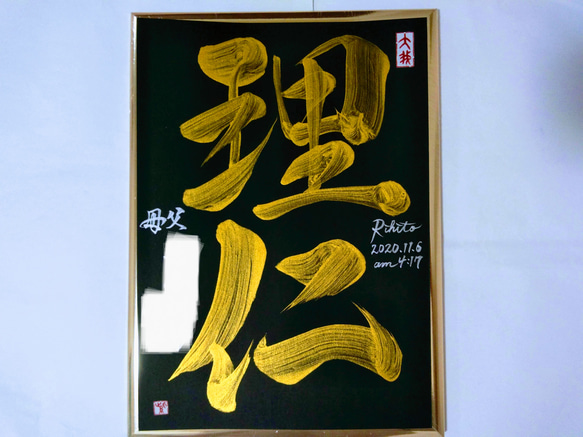 理仁
大雅
Rihito
2020.11.6
am 4:17
父
母